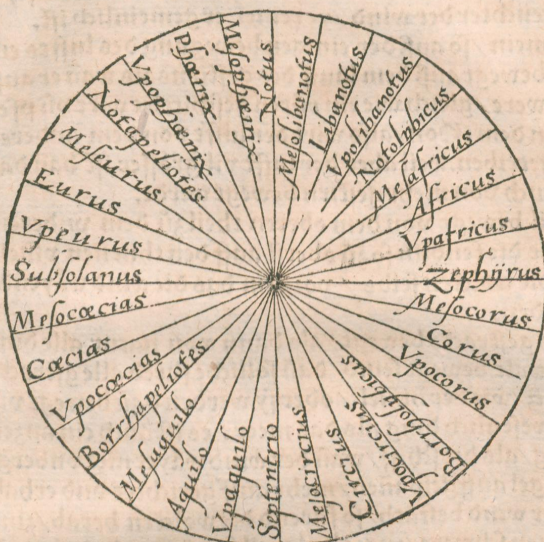 Notus
Meſolibanotus
Libanotus
Vpolibanotus
Notolybicus
Meſafricus
Africus
Vpafricus
Zephÿrus
Meſocorus
Corus
Vpocorus
Borrholybicus
Vpocircius
Circius
Meſocircius
Septentrio
Vpaquilo
Aquilo
Meſaquilo
Borrhapeliotes
Vpocœcias
Cœcias
Meſocœcias
Subſolanus
Vpeurus
Eurus
Meſeurus
Notapeliotes
Vpophœnix
phœnix
Meſophœnix